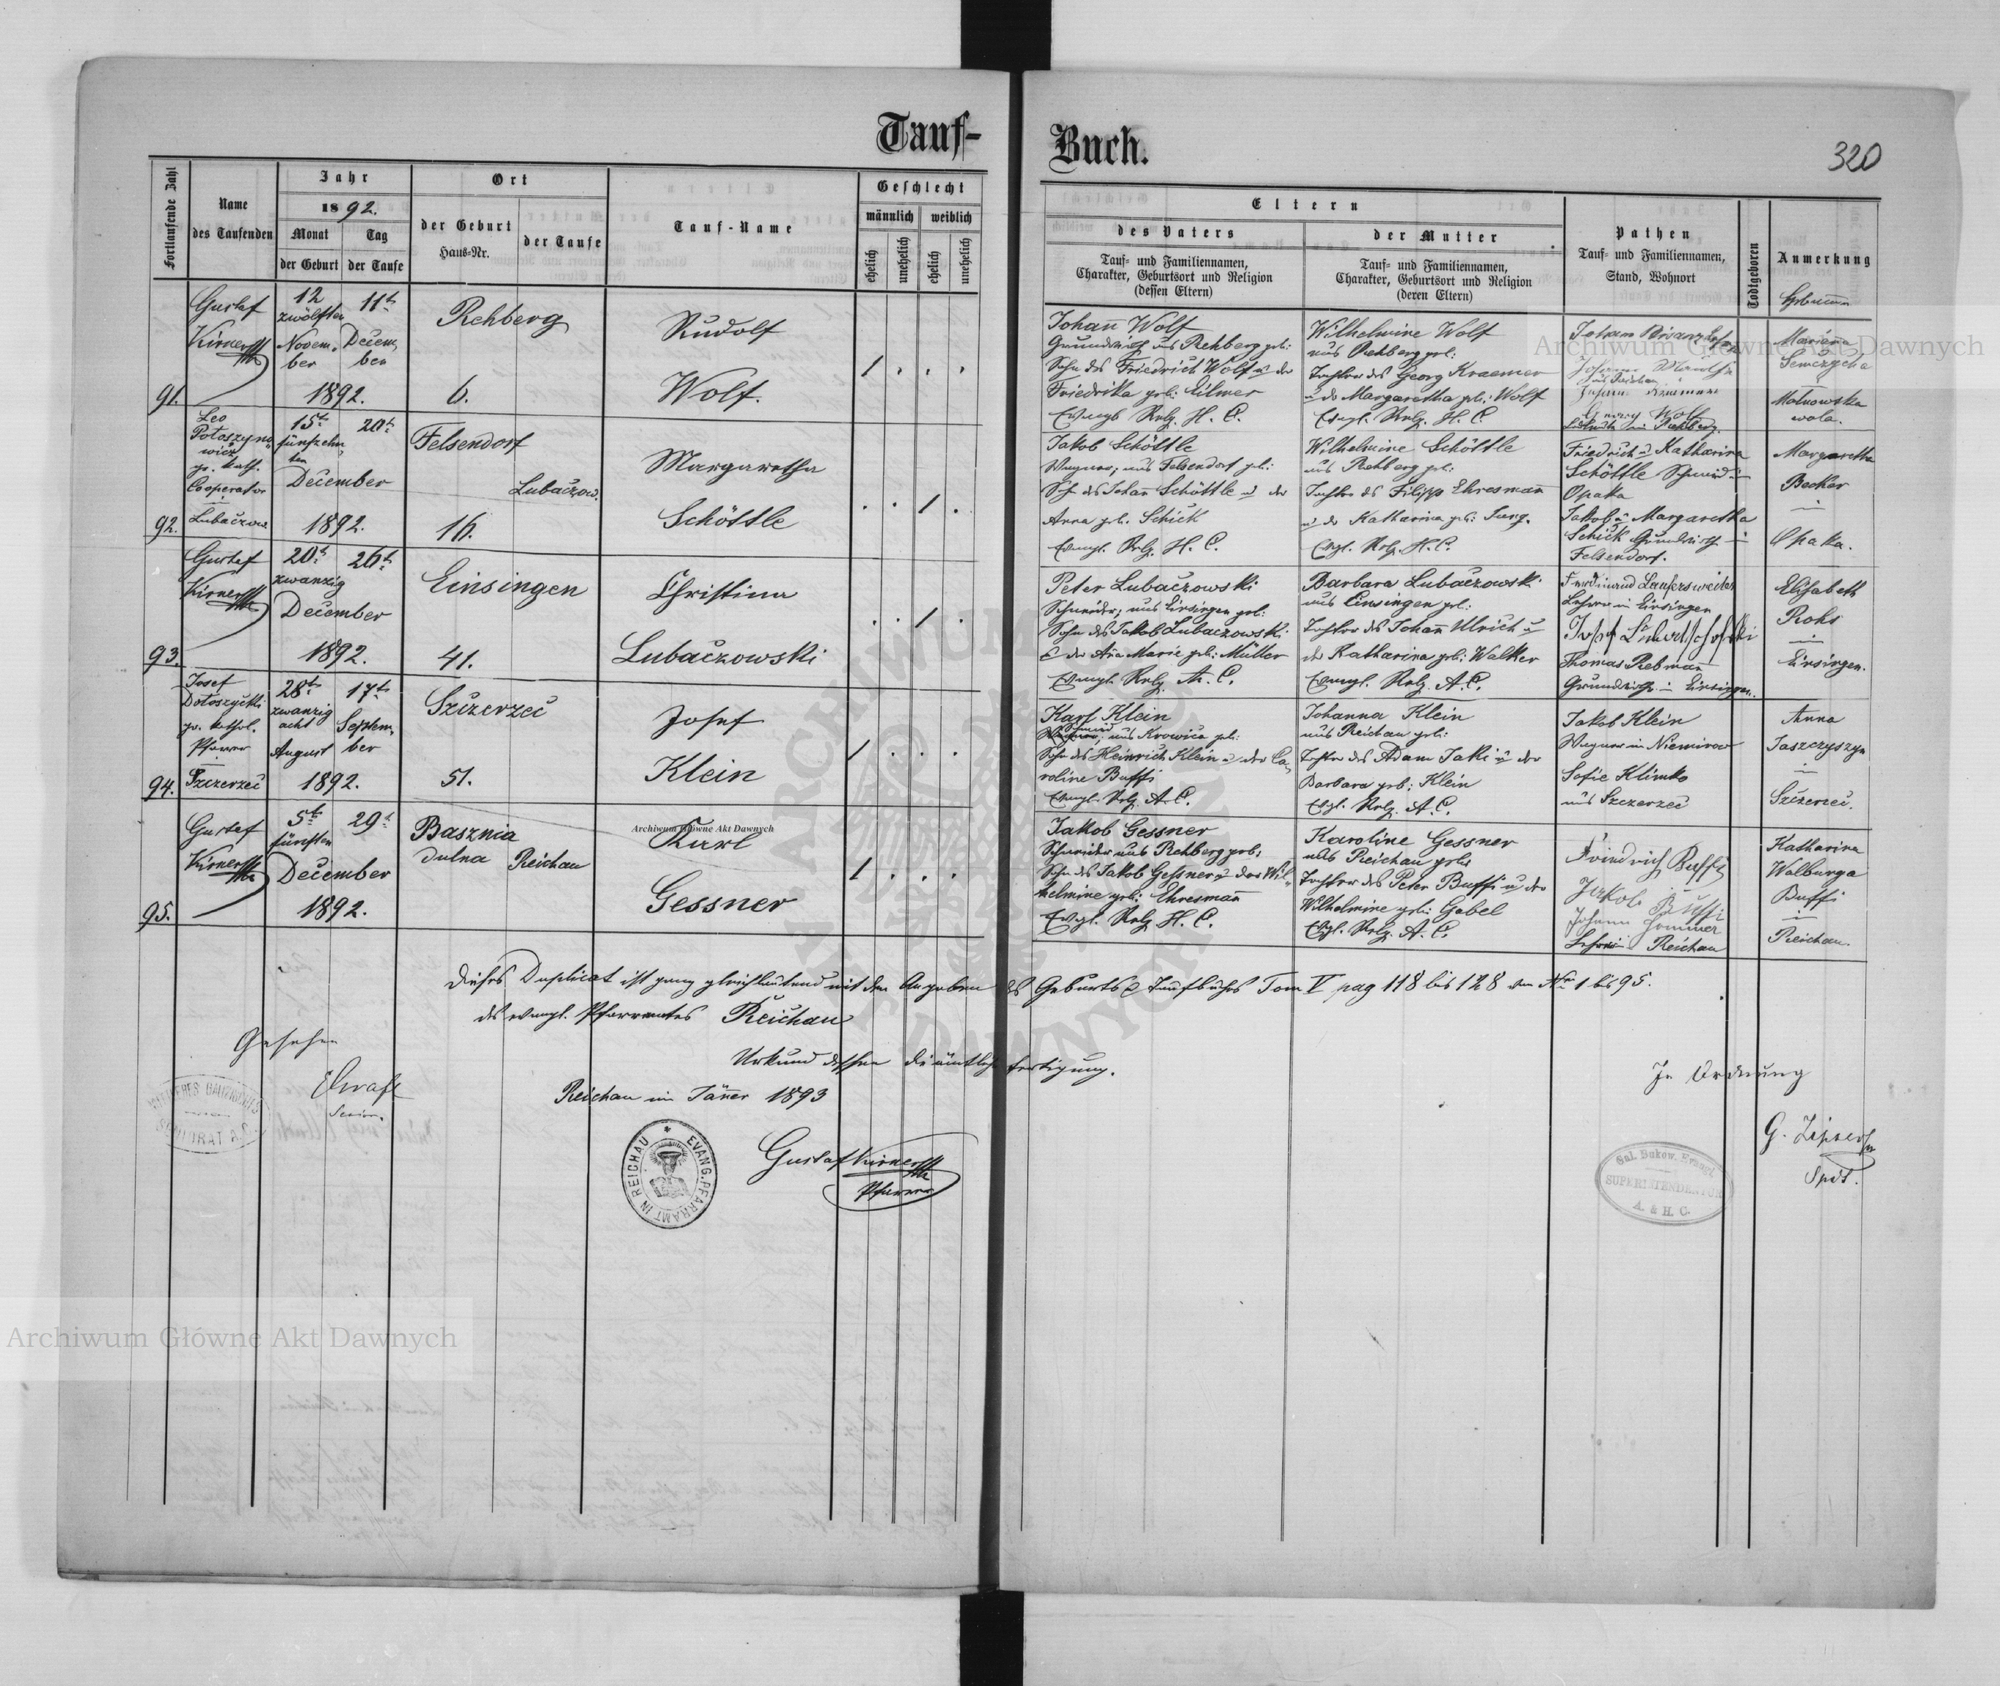 Tauf-
Buch.
320
Fortlaufende Zahl
Name
des Taufenden
Jahr
1892.
Monat
Tag
der Geburt
der Taufe
Ort
der Geburt
Haus-Nr.
der Taufe
Tauf-Name
Geschlecht
männlich
weiblich
ehelich
unehelich
ehelich
unehelich
Eltern
des Vaters
Tauf- und Familiennamen,
Charakter, Geburtsort und Religion
(dessen Eltern)
der Mutter
Tauf- und Familiennamen,
Charakter, Geburtsort und Religion
(deren Eltern)
Pathen
Tauf- und Familiennamen,
Stand, Wohnort
Todtgeboren
Anmerkung
91.
Gustaf
Kirner
12
zwölften
Novem-
ber
11t
Decem
ber
1892.
Rehberg
6.
Rudolf
Wolf.
1 . . .
Johann Wolf
Grundwirth aus Rehberg geb:
Sohn des Friedrich Wolf u der
Friedrika geb: Eilmer
Evangl. Relg. H. C.
Wilhelmine Wolf
aus Rehberg geb:
Tochter des Georg Kraemer
u der Margaretha geb: Wolf
Evgl. Relg. H. C.
Johann
Georg Wolf
Rehberg.
Semczycha
wola.
92.
Leo
Potoszyno
wicz
gr. kath.
Cooperator
Lubaczow
15t
fünfzehn
ten
20t
December
1892.
Felsendorf
16.
Lubaczow.
Margaretha
Schöttle
. . 1 .
Jakob Schöttle
Wagner, aus Felsendorf geb:
Sohn des Johann Schöttle u der
Anna geb. Schick
Evangl. Relg. H. C.
Wilhelmine Schöttle
aus Rehberg geb:
Tochter des Filipp Ehresmann
u der Katharina geb: Jung.
Evgl. Relg. H. C.
Friedrich u Katharina
Schöttle Schmid in
Opaka
Jakob u Margaretha
Schick Grundwirth in
Felsendorf.
Margaretha
Becker
in
Opaka.
93.
Gustaf
Kirner
20t
zwanzig
26t
December
1892.
Einsingen
41.
Christina
Lubaczowski
. . 1 .
Peter Lubaczowski
Schneider, aus Einsingen geb:
Sohn des Jakob Lubaczowski
u der Anna Marie geb: Müller
Evangl. Relg. A. C.
Barbara Lubaczowski
aus Einsingen geb:
Tochter des Johann Ulrich u
der Katharina geb: Walker
Evangl. Relg. A. C.
Ferdinand Laufersweiler
Lehrer in Einsingen
Thomas Rebmann
Grundwirth in Einsingen.
Elisabeth
Roks
in
Einsingen.
94.
Josef
gr. kathol.
Pfarrer
Szczerzec
28t
zwanzig
acht
August
17t
Septem
ber
1892.
Szczerzec
51.
Josef
Klein
1 . . .
Karl Klein
aus Krowica geb:
Sohn des Heinrich Klein u der Ca
roline Buffi
Evangl. Relg. A. C.
Johanna Klein
aus Reichau geb:
Tochter des Adam Jaki u der
Barbara geb: Klein
Evgl. Relg. A. C.
Jakob Klein
Wagner in Niemirow
Sofie Klimko
aus Szczerzec
Anna
Jaszczyszyn
in
Szczerzec.
95.
Gustaf
Kirner
5t
fünften
29t
December
1892.
Basznia
dulna
Reichau
Karl
Gessner
1 . . .
Jakob Gessner
Schneider aus Rehberg geb:
Sohn des Jakob Gessner u der Wil-
helmine geb: Ehresmann
Evgl. Relg. H. C.
Karoline Gessner
aus Reichau geb:
Tochter des Peter Buffi u der
Wilhelmine geb: Gabel
Evgl. Relg. A. C.
Friedrich Buffi
Jakob Buffi
Johann Sommer
Reichau
Katharina
Walburga
Buffi
in
Reichau.
Dieses Duplicat ist ganz gleichlautend mit den Angaben des Geburts & Taufbuches Tom V pag 118 bis 128 von No 1 bis 95.
des evangl. Pfarramtes Reichau
Urkund dessen die ämtliche Fertigung.
Reichau im Jänner 1893
Gesehen
Senior.
SENIORAT A. C.
EVANG. PFARRAMT IN REICHAU
Gustaf Kirner
Pfarrer
In Ordnung
Gal. Bukow. Evangel.
SUPERINTENDENTUR
A. & H. C.
Archiwum Główne Akt Dawnych
Archiwum Główne Akt Dawnych
Archiwum Główne Akt Dawnych